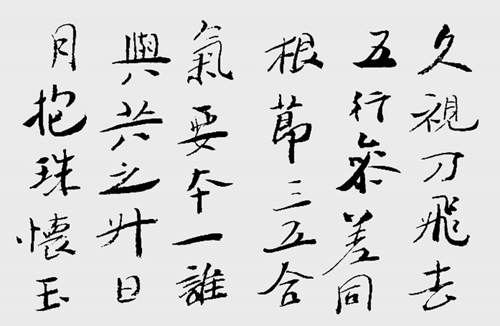 久視乃飛去
五行參差同
根節三五合
氣要本一誰
與共之升日
月抱珠懷玉